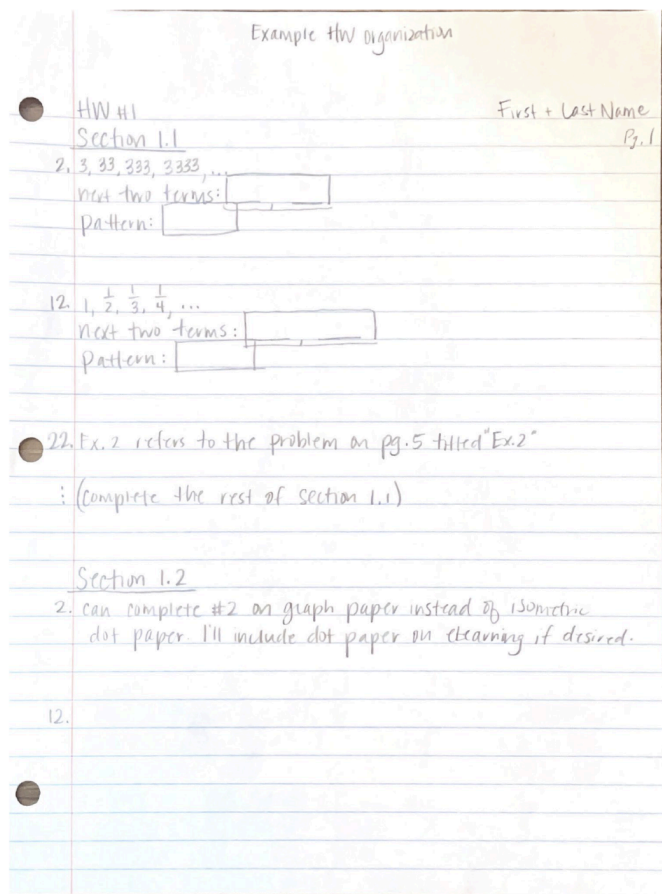 Example HW organization
HW #1
First + Last Name
Section 1.1
Pg. 1
2. 3, 33, 333, 3333, ...
next two terms: ___, ___
pattern:
12. 1, 1/2, 1/3, 1/4, ...
next two terms: ___, ___
Pattern:
22. Ex. 2 refers to the problem on pg. 5 titled "Ex. 2"
⋮ (complete the rest of section 1.1)
Section 1.2
2. can complete #2 on graph paper instead of isometric
dot paper. I'll include dot paper on elearning if desired.
12.